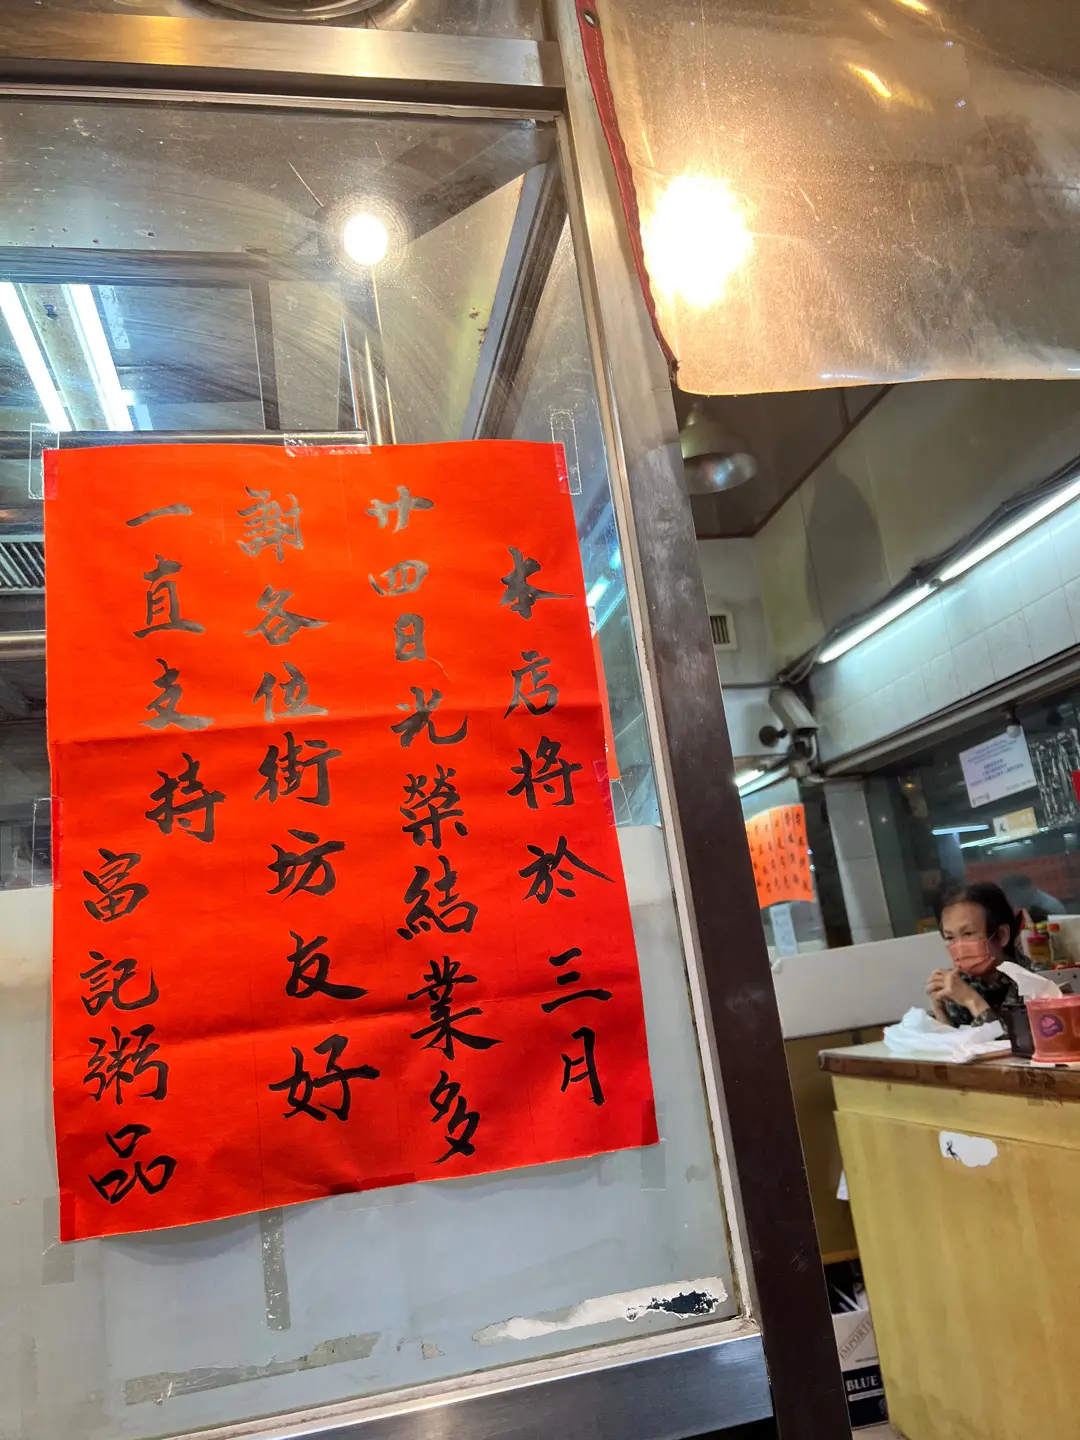 本店將於三月
廿四日光榮結業多
謝各位街坊友好
一直支持
富記粥品
IMPORTE
BLUE